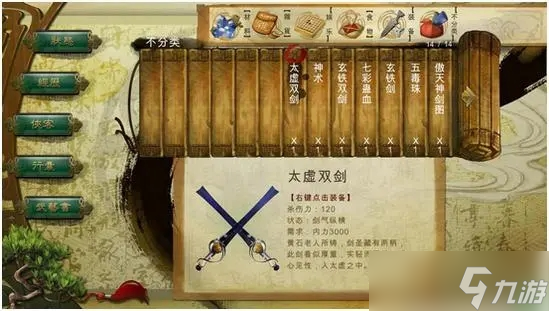 状态
經歷
俠客
行囊
武藝會
材料
雜貨
娱乐
食物
装备
不分类
14 / 14
不分类
太虚双剑 X 1
神术 X 1
玄铁双剑 X 1
七彩蛊血 X 1
玄铁剑 X 1
五毒珠 X 1
傲天神剑图 X 1
太虚双剑
【右键点击装备】
杀伤力：120
状态：剑气纵横
需求：内力3000
黄石老人所铸，剑圣藏有两柄
此剑看似厚重，实轻
心见性，入太虚之中。
九游